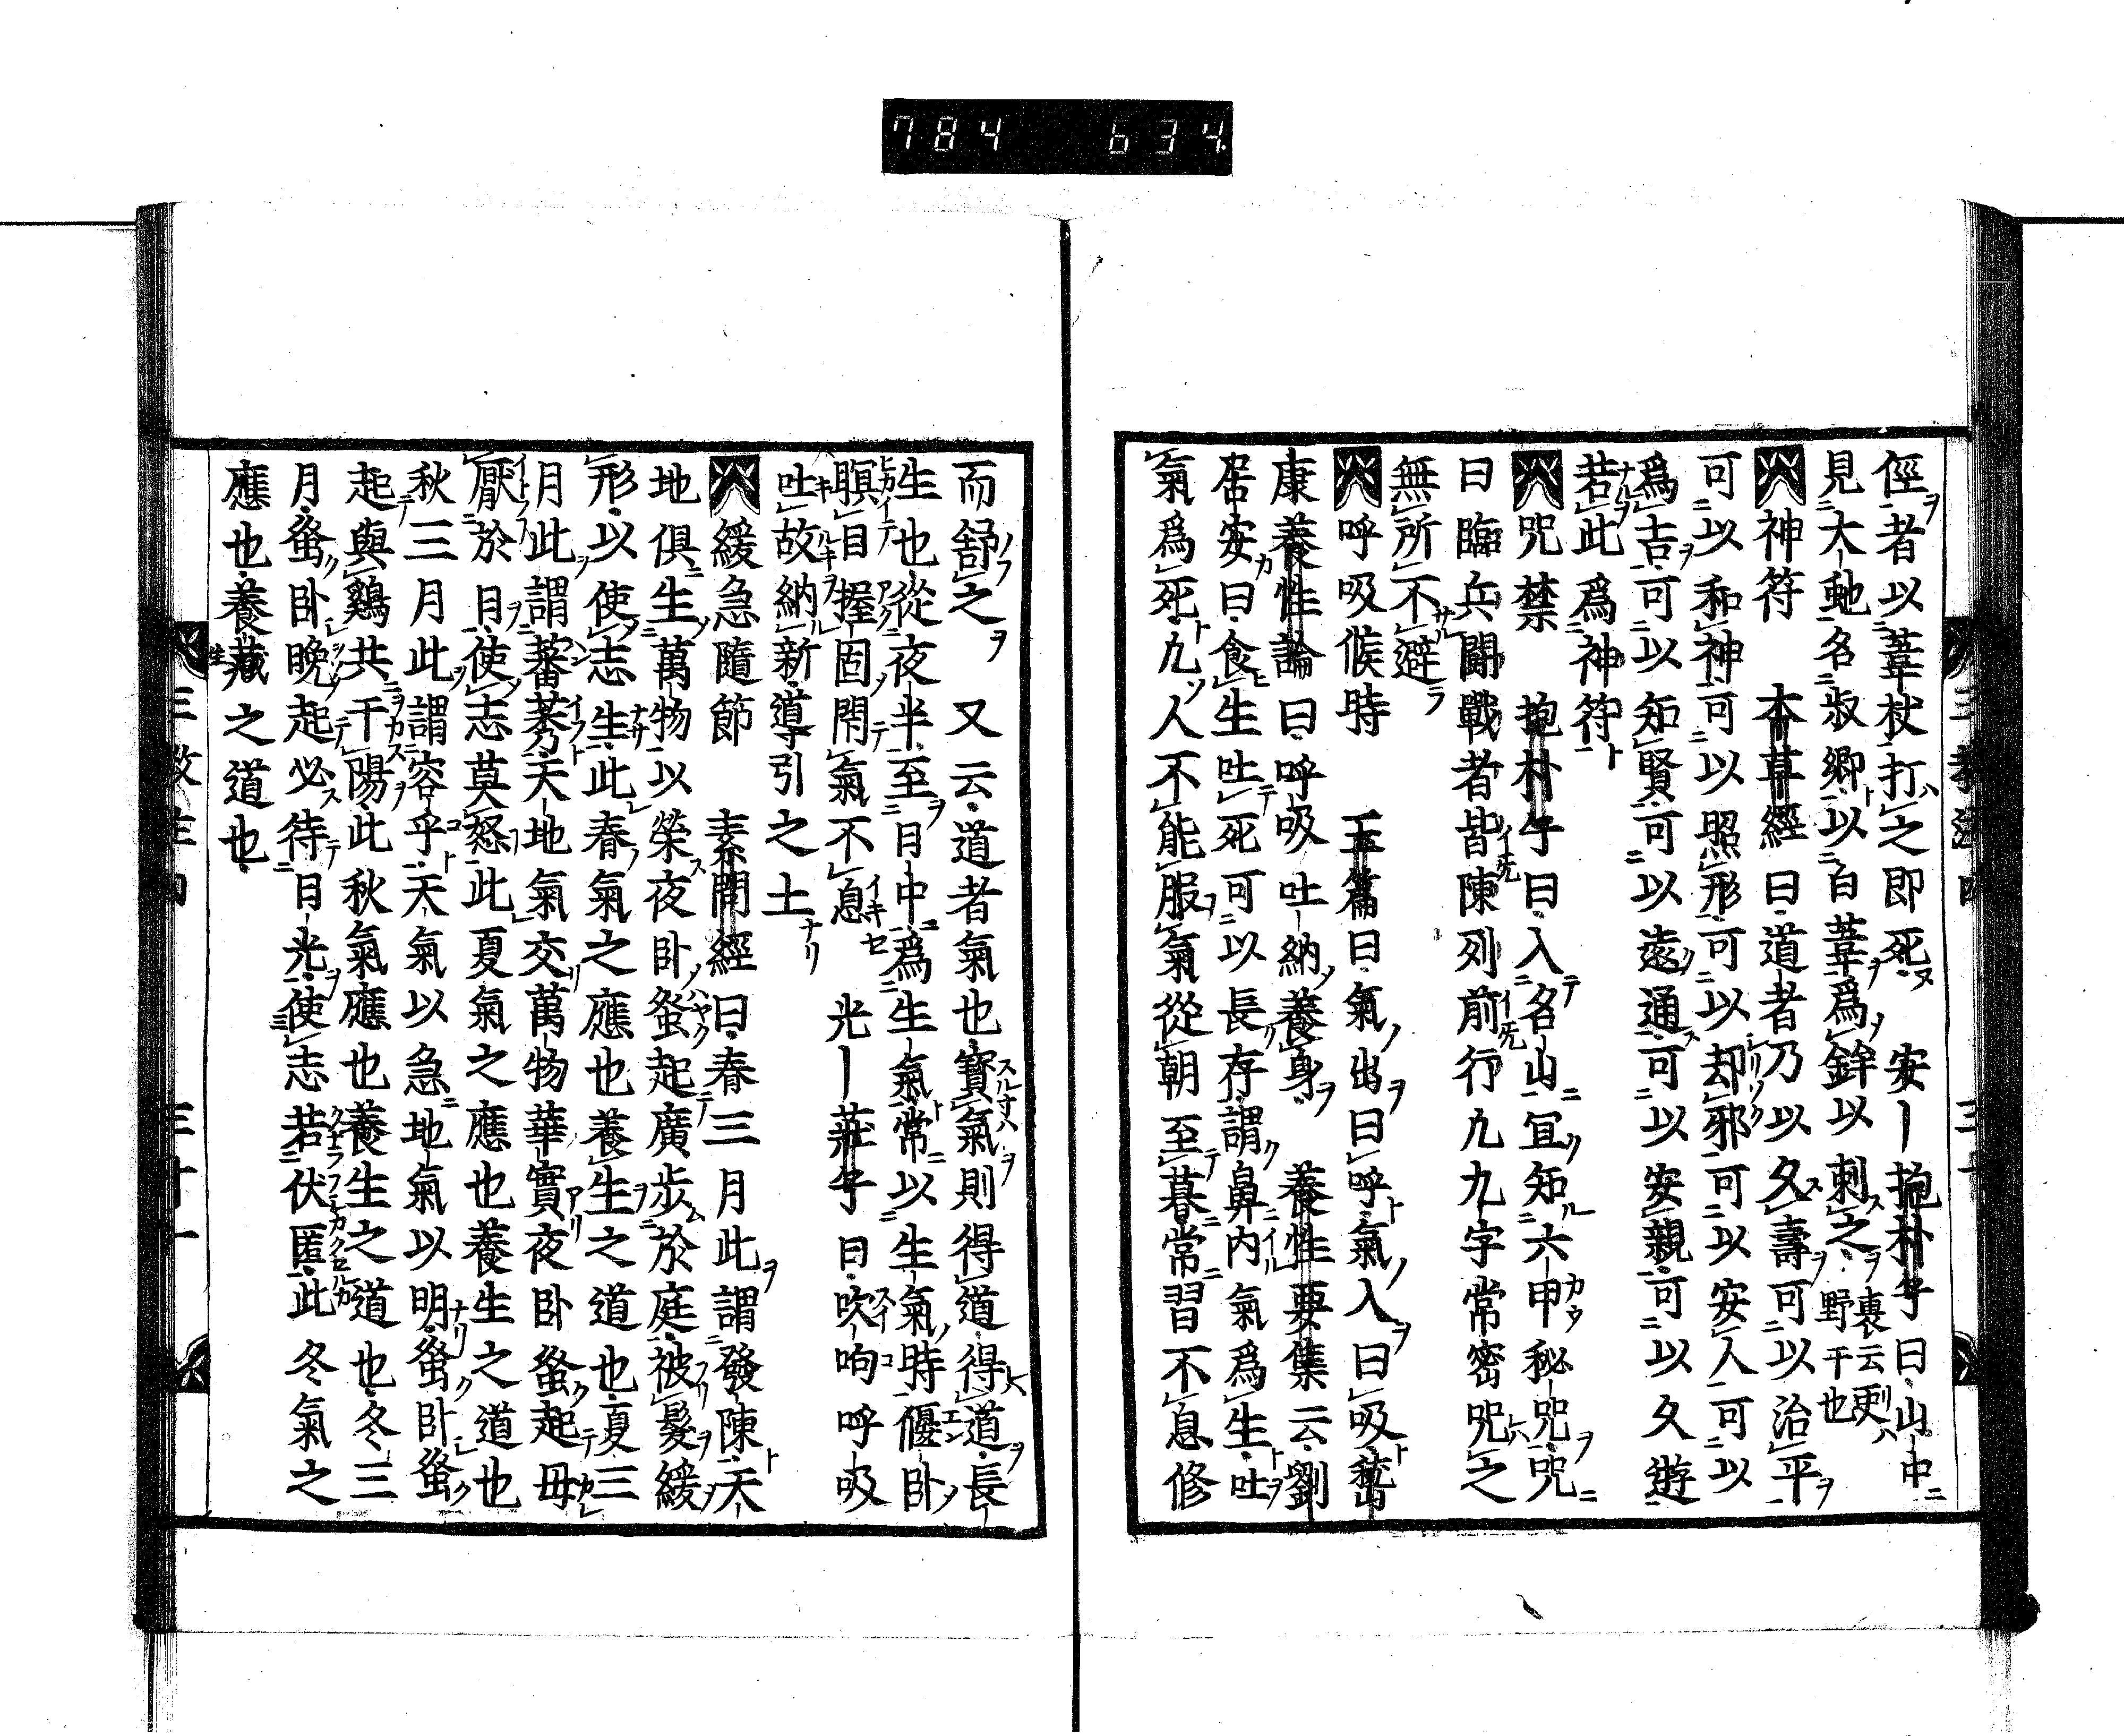 784 634
徑者以葦杖打之即死 安｜抱朴子曰山中
見大虵名叔卿以白葦爲鉾以刺之 裹云剽更 野干也
神符 本草經曰道者乃以久壽可以治平
可以和神可以照形可以却邪可以安人可以
爲吉可以知賢可以遠通可以安親可以久遊
若此爲神符
咒禁 抱朴子曰入名山宜知六甲秘咒咒
曰臨兵鬪戰者皆陳列前行九九字常密咒之
無所不避
呼吸候時 玉篇曰氣出曰呼氣入曰吸嵆
康養性論曰呼吸吐納養身 養性要集云劉
居安曰食生吐死可以長存謂鼻内氣爲生吐
氣爲死九人不能服氣從朝至暮常習不息修
而舒之 又云道者氣也寳氣則得道得道長
生也從夜半至日中爲生氣常以生氣時偃卧
瞑目握固閇氣不息 光｜莊子曰吹呴呼吸
吐故納新導引之士
緩急隨節 素問經曰春三月此謂發陳天
地俱生萬物以榮夜卧蚤起廣步於庭被髮緩
形以使志生此春氣之應也養生之道也夏三
月此謂蕃莠天地氣交萬物華實夜卧蚤起毋
厭於日使志莫怒此夏氣之應也養生之道也
秋三月此謂容乎天氣以急地氣以明蚤卧蚤
起與鷄共干陽此秋氣應也養生之道也冬三
月蚤卧晚起必待日光使志若伏匿此冬氣之
應也養藏之道也